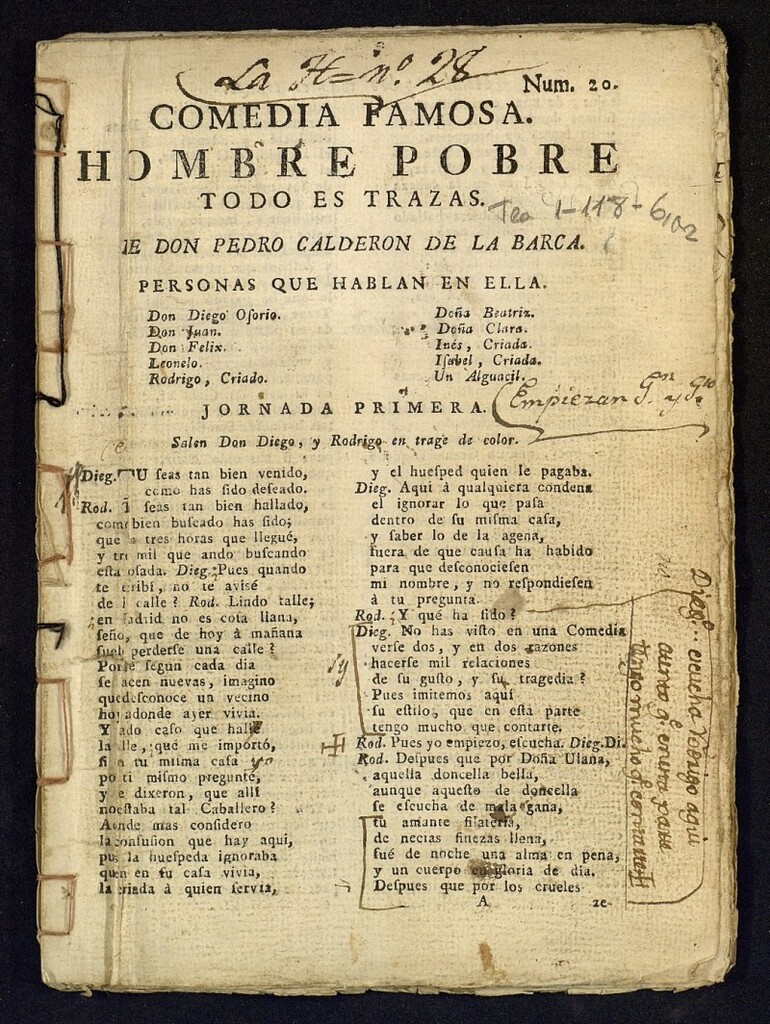 La H= nº. 28
Num. 20.
COMEDIA FAMOSA.
HOMBRE POBRE
TODO ES TRAZAS.
Tea 1-118-6,a2
DE DON PEDRO CALDERON DE LA BARCA.
PERSONAS QUE HABLAN EN ELLA.
Don Diego Oſorio.
Don Juan.
Don Felix.
Leonelo.
Rodrigo, Criado.
Doña Beatriz.
Doña Clara.
Inés, Criada.
Iſabel, Criada.
Un Alguacil.
JORNADA PRIMERA.
Empiezan
Salen Don Diego, y Rodrigo en trage de color.
Dieg. TU ſeas tan bien venido,
como has ſido deſeado.
Rod. Tú ſeas tan bien hallado,
como bien buſcado has ſido;
que a tres horas que llegué,
y tres mil que ando buſcando
eſta poſada. Dieg. Pues quando
te eſcribí, no te aviſé
de la calle? Rod. Lindo talle;
en Madrid no es coſa llana,
ſeñor, que de hoy á mañana
ſuele perderſe una calle?
Porque ſegun cada dia
ſe hacen nuevas, imagino
que deſconoce un vecino
hoy adonde ayer vivia.
Y dado caſo que hallé
la calle, qué me importó,
ſi á tu miſma caſa yo
por ti miſmo pregunté,
y me dixeron, que alli
no eſtaba tal Caballero?
Adonde mas conſidero
la confuſion que hay aqui,
pues la hueſpeda ignoraba
quien en ſu caſa vivia,
la criada á quien ſervia,
y el hueſped quien le pagaba.
Dieg. Aqui á qualquiera condena
el ignorar lo que paſa
dentro de ſu miſma caſa,
y ſaber lo de la agena,
fuera de que cauſa ha habido
para que deſconocieſen
mi nombre, y no reſpondieſen
á tu pregunta.
Rod. ¿Y qué ha ſido?
Dieg. No has viſto en una Comedia
verſe dos, y en dos razones
hacerſe mil relaciones
de ſu guſto, y ſu tragedia?
Pues imitemos aqui
ſu eſtilo, que en eſta parte
tengo mucho que contarte.
Rod. Pues yo empiezo, eſcucha. Dieg. Di.
Rod. Deſpues que por Doña Ulana,
aquella doncella bella,
aunque aqueſto de doncella
ſe eſcucha de mala gana,
tu amante filateria,
de necias finezas llena,
fué de noche una alma en pena,
y un cuerpo en gloria de dia.
Deſpues que por los crueles
A
ze-
sy
no
Dieg. escucha Rodrigo aqui
aunq.e en otra parte
tengo mucho q.e contarte